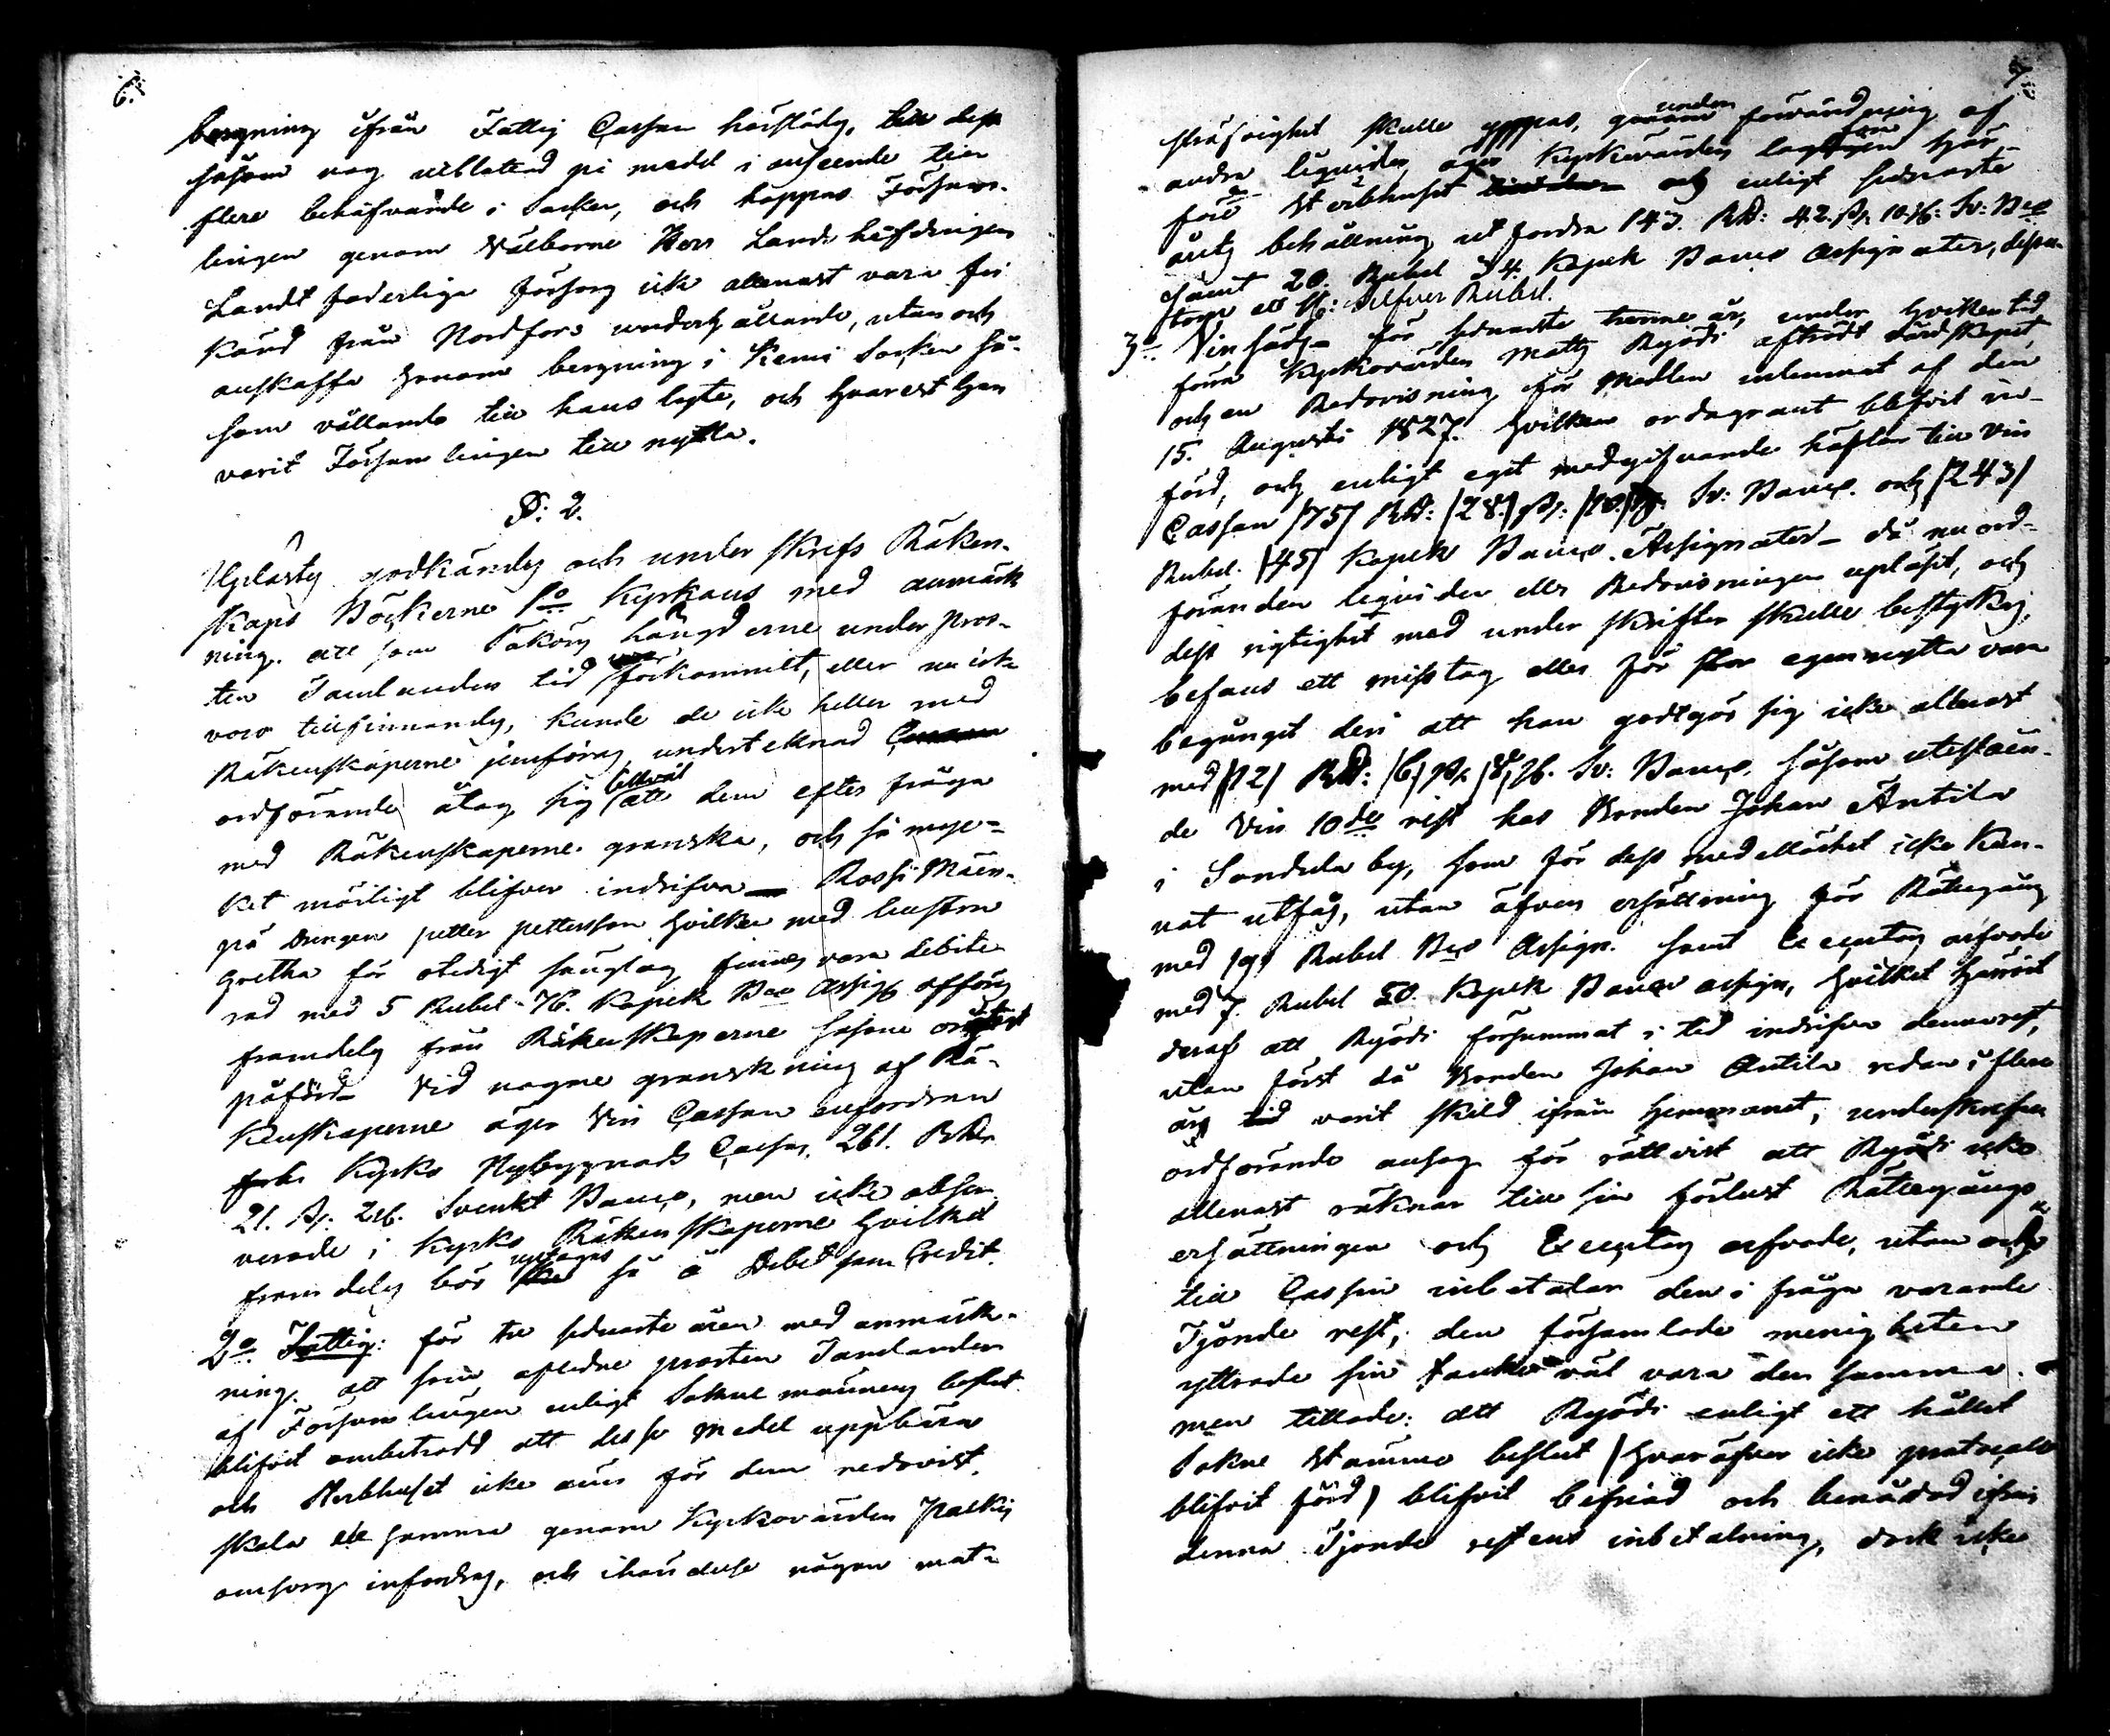 6.
bergning ifrån Fattig Cassan härstädes, till dess
såsom nog utblottad på medel i anseende till
flere behöfvande i Socken, och hoppas Försam-
lingen genom Välborne Herr Landshöfdingens
Landtfaderliga försorg icke allenast vara fri
känd från Nordfors underhållande, utan och
anskaffa honom bergning i Kemi Socken så-
som vållande till hans lyte, och hvarest han
varit Församlingen till nytta.
§: 2.
Uplästes godkändes och under skrefs Räken-
skaps Böckerne 1o Kyrkans med anmärk
ning, att som Saköres längderne under pros-
ten Jamlanders tid förkommit, eller nu icke
voro tillfinnandes, kunde de icke heller med
Räkenskaperne jemföras, undertecknad
ordförande åtog sig att dem efter fråga
med Räkenskaperne granska, och så myc-
ket möiligt blifver indrifva — Rossi Mäen-
pä Drengen petter pettersson hvilken med hustru
Gretha för otidigt sänglag finnes vara debite
rad med 5 Rubel 76. Kopek Bco Assig afföres
framdeles från Räkenskaperne såsom orätt
påförd — Vid nogare granskning af Rä-
kenskaperne äger Vin Cassan anfordran
Kyrko Nybyggnads Cassan, 261. RD:
21. s: 2 rs. Svenkt Banco, men icke obser
verade i Kyrko Räkenskaperne hvilket
framdeles bör uptagas så å Debet som Credit.
2o Fattig: för tre sednaste åren med anmärk-
ning, att som afledne prosten Jamlander
af Församlingen enligt Sokne männens beslut
blifvit ombetrodd att desse medel uppbära
och Sterbhuset icke änn för dem redovist,
skola de samma genom Kyrkovärden Paakis
omsorg infordras, och ihändelse någon mot-
7.
sträfvighet skulle yppas, under förvändning af
andra liquider, äger Kyrkovärden lagsöka här-
före Sterbhuset och enligt sednaste
årets behållning utfordra 143. RD: 42. s: 10. rs: Sv: Bco
samt 20. Rubel 34. Kopek Banco Assignater, dessu-
tom ett st: Silfver Rubel.
3o Vinsäds för sednaste trenne år, under hvilken tid
förra Kyrkovärden Matts Ryödi afträdt värdskapet,
och en Redovisning för Medlen inlemnat af den
15. Augusti 1827. hvilken ordagrant blifvit in-
förd, och enligt eget medgifvande häftar till Vin
Cassan /75/ RD: /28/ s: /10/ rs: Sv: Banco. och /243/
Rubel. /45/ Kopek Banco. Assignater — då nu ord-
föranden liquiden eller Redovisningen upläsit, och
dess rigtighet med under skrifter skulle bestyrkas,
befans ett misstag eller för stor egennytta vara
begånget deri att han godtgör sig icke allenast
med /12/ RD: /6/ s: /8/ rs. Sv: Banco, såsom utestäen-
de Vin 10de rest hos Bonden Johan Antila
i Sondula by, som för dess medellöshet icke kun-
nat utfås, utan äfven ersättning för Rättegång
med /9/ Rubel Bco Assign. samt Executors arfvode
med 7. Rubel 50. Kopek Banco assign, hvilket härrört
deraf att Ryödi försummat i tid indrifva denna rest,
utan först då Bonden Johan Antila redan i flere
års tid varit skild ifrån hemmanet, underskrefven
ordförande ansåg för rättvist att Ryödi icke
allenast räknar till sin förlust Rättegångs
ersättningen och Executors arfvode, utan och
till Cassan inbetalar den i fråga varande
Tjonde rest, den församlade menigheten
yttrade sin tanke väl vara den samma
men tillade: att Ryödi enligt ett hållet
Sokne Stämmo beslut /hvaröfver icke protocoll
blifvit förd/ blifvit befriad och benådad ifrån
denna Tjonde restens inbetalning, dock icke